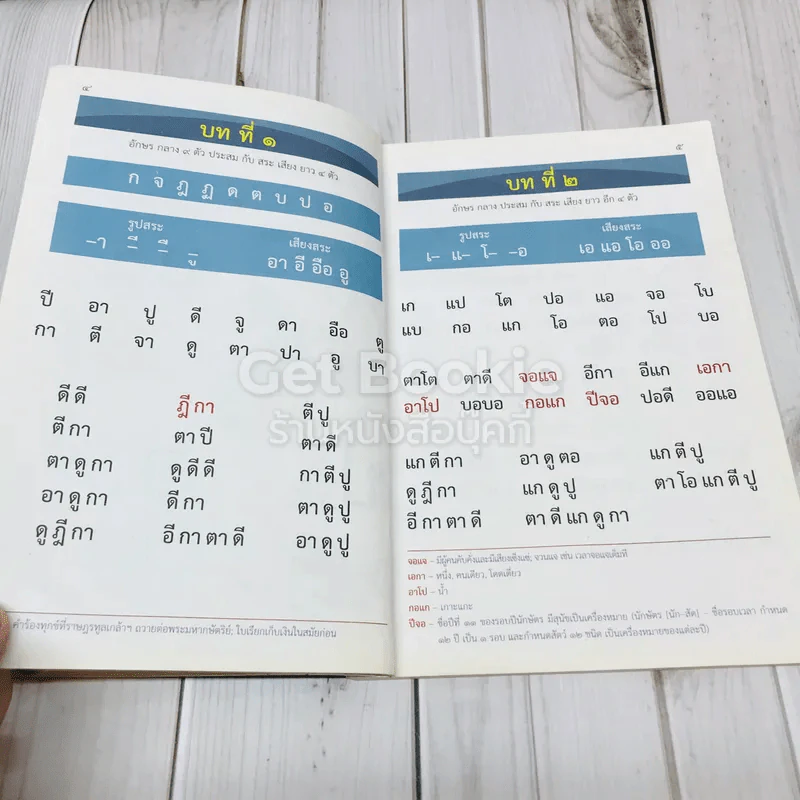 ๔
บท ที่ ๑
อักษร กลาง ๙ ตัว ประสม กับ สระ เสียง ยาว ๔ ตัว
ก จ ฎ ฏ ด ต บ ป อ
รูปสระ เสียงสระ
–า –ี –ื –ู อา อี อือ อู
ปี อา ปู ดี จู ดา อือ ตู
กา ตี จา ดู ตา ปา อู บา
ดีดี ฎีกา ตีปู
ตีกา ตาปี ตาดี
ตาดูกา ดูดีดี กาตีปู
อาดูกา ดีกา ตาดูปู
ดูฎีกา อีกาตาดี อาดูปู
คำร้องทุกข์ที่ราษฎรทูลเกล้าฯ ถวายต่อพระมหากษัตริย์; ใบเรียกเก็บเงินในสมัยก่อน
๕
บท ที่ ๒
อักษร กลาง ประสม กับ สระ เสียง ยาว อีก ๔ ตัว
รูปสระ เสียงสระ
เ– แ– โ– –อ เอ แอ โอ ออ
เก แป โต ปอ แอ จอ โบ
แบ กอ แก โอ ตอ โป บอ
ตาโต ตาดี จอแจ อีกา อีแก เอกา
อาโป บอบอ กอแก ปีจอ ปอดี ออแอ
แกตีกา อาดูตอ แกตีปู
ดูฎีกา แกดูปู ตาโอแกตีปู
อีกาตาดี ตาดีแกดูกา
จอแจ – มีผู้คนคับคั่งและมีเสียงเซ็งแซ่; จวนแจ เช่น เวลาจอแจเต็มที
เอกา – หนึ่ง, คนเดียว, โดดเดี่ยว
อาโป – น้ำ
กอแก – เกาะแกะ
ปีจอ – ชื่อปีที่ ๑๑ ของรอบปีนักษัตร มีสุนัขเป็นเครื่องหมาย (นักษัตร [นัก–สัด] – ชื่อรอบเวลา กำหนด
๑๒ ปี เป็น ๑ รอบ และกำหนดสัตว์ ๑๒ ชนิด เป็นเครื่องหมายของแต่ละปี)
Get Bookie
ร้านหนังสือบุ๊คกี้